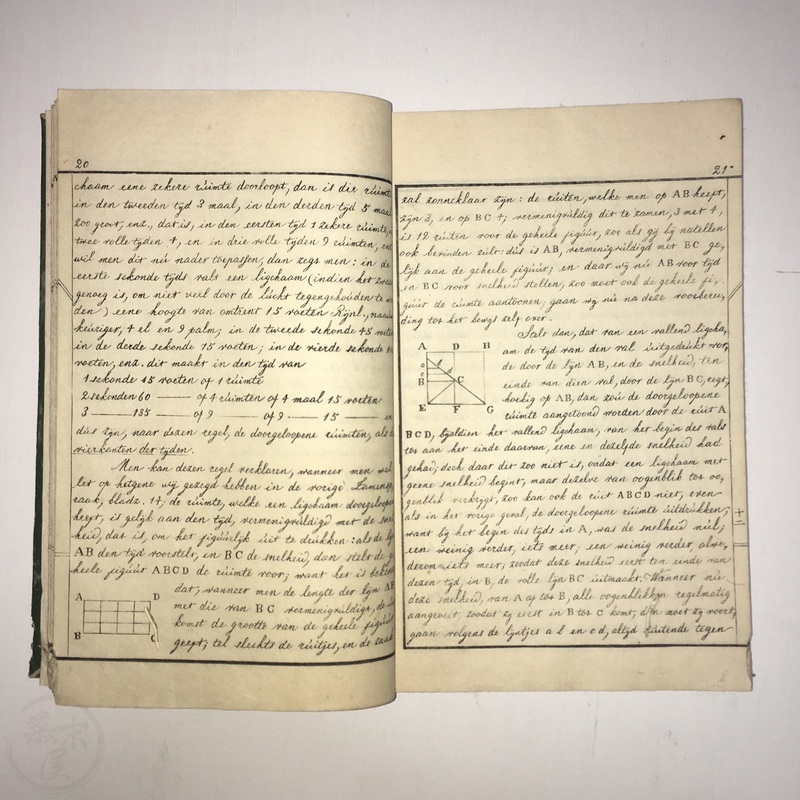 20
chaam eene zekere rúimte doorloopt, dan is die rúimte
in den tweeden tijd 3 maal, in den derden tijd 5 maal
zoo groot, enz., dat is, in den eersten tijd 1 zekere rúimte,
twee volle tijden 4, en in drie volle tijden 9 rúimten, en
wil men dit nú nader toepassen, dan zegt men: in de
eerste sekonde tijds valt een ligchaam (indien het
genoeg is, om niet veel door de lúcht tegengehoúden te
den) eene hoogte van omtrent 15 voeten Rijnl.,
keúriger, 4 el en 9 palm; in de tweede sekonde 45 voeten
in de derde sekonde 75 voeten; in de vierde sekonde
voeten, enz. dit maakt in den tijd van
1 sekonde 15 voeten of 1 rúimte
2 sekonden 60 — of 4 rúimten of 4 maal 15 voeten
3 — 135 — of 9 — of 9 — 15 — en
dús zijn, naar dezen regel, de doorgeloopene rúimten, als
vierkanten der tijden.
Men kan dezen regel verklaren, wanneer men wel
let op hetgene wij gezegd hebben in de vorige
spraak, bladz. 14; de rúimte, welke een ligchaam doorgeloopen
heeft, is gelijk aan den tijd, vermenigvúldigd met de snel
heid, dat is, om het figúúrlijk úit te drúkken: als de lijn
AB den tijd voorstelt, en BC de snelheid, dan stelt de ge
heele figúúr ABCD de rúimte voor; want het is bekend
dat, wanneer men de lengte der lijn AB
met die van BC vermenigvúldigt, de
komst de grootte van de geheele figúúr
geeft; tel slechts de rúitjes, en de zaak
A D
B C
21
zal zonneklaar zijn: de rúiten, welke men op AB heeft,
zijn 3, en op BC 4; vermenigvúldig dit te zamen, 3 met 4,
is 12 rúiten voor de geheele figúúr, zoo als gij bij natellen
ook bevinden zúlt: dús is AB, vermenigvúldigd met BC ge,
lijk aan de geheele figúúr; en daar wij nú AB voor tijd
en BC voor snelheid stellen, zoo moet ook de geheele fi,
gúúr de rúimte aantoonen; gaan wij nú na deze voorberei,
ding tot het bewijs zelf over.
Stelt dan, dat van een vallend ligcha,
am de tijd van den val úitgedrúkt wor,
de door de lijn AB, en de snelheid, ten
einde van dien val, door de lijn BC, regt,
hoekig op AB, dan zoú de doorgeloopene
rúimte aangetoond worden door de rúit A
A D H
a b
c d
B C
E F G
BCD, bijaldien het vallend ligchaam, van het begin des vals
tot aan het einde daarvan, eene en dezelfde snelheid had
gehad; doch daar dit zoo niet is, omdat een ligchaam met
geene snelheid begint, maar dezelve van oogenblik tot oo,
genblik verkrijgt, zoo kan ook de rúit ABCD niet, even
als in het vorige geval, de doorgeloopene rúimte úitdrúkken;
want bij het begin des tijds in A, was de snelheid núl;
een weinig verder, iets meer; een weinig verder, alwe,
derom iets meer; zoodat deze snelheid eerst ten einde van
dezen tijd, in B, de volle lijn BC úitmaakt. Wanneer nú
deze snelheid, van A af tot B, alle oogenblikken regelmatig
aangroeit, zoodat zij eerst in B tot C komt, dan moet zij voort,
gaan volgens de lijntjes a b en c d, altijd stúitende tegen